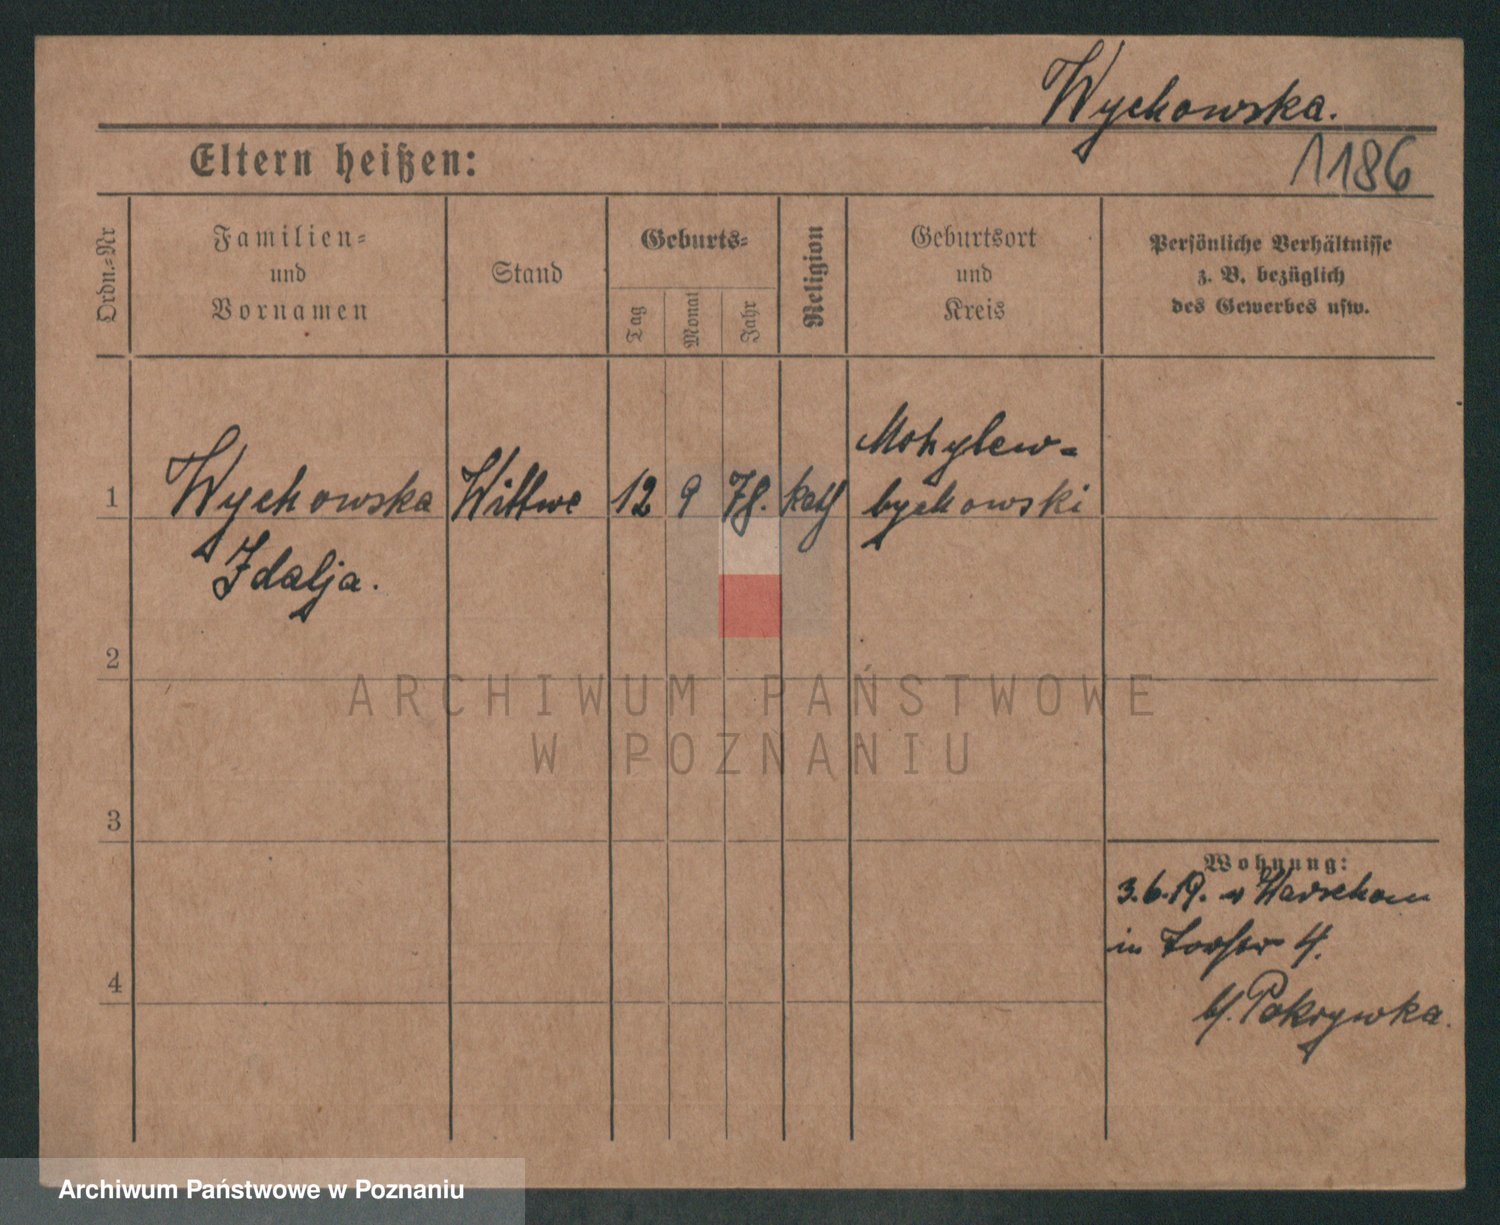 Wychowska.
1186
Eltern heißen:
Ordn.-Nr
Familien-
und
Vornamen
Stand
Geburts-
Tag
Monat
Jahr
Religion
Geburtsort
und
Kreis
Persönliche Verhältnisse
z. B. bezüglich
des Gewerbes usw.
1
Wychowska
Idalja.
Wittwe
12
9
78.
kath
Mohylew-
bychowski
2
3
4
Wohnung:
3.6.19. v Warschau
in 4.
b/. Pokrywka.
ARCHIWUM PAŃSTWOWE
W POZNANIU
Archiwum Państwowe w Poznaniu